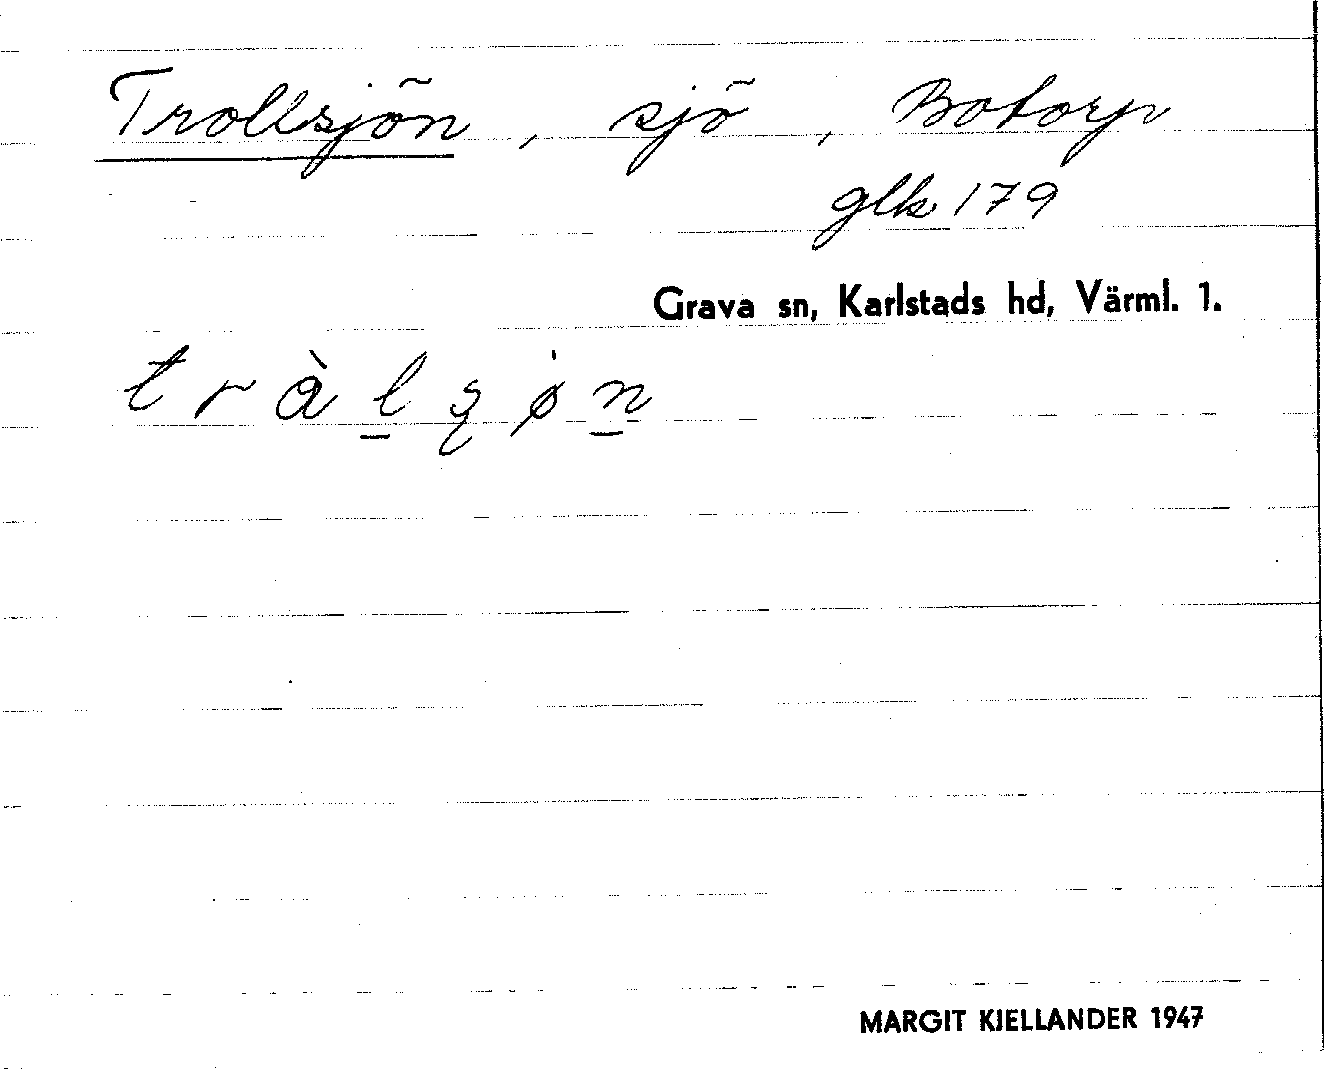 Trollsjön, sjö, Botorp
glk 179
Grava sn, Karlstads hd, Värml. 1.
tràl̲ʂø̍n̲
MARGIT KJELLANDER 1947